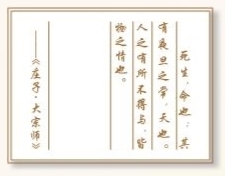 死生，命也；其
有夜旦之常，天也。
人之有所不得与，皆
物之情也。
——《庄子·大宗师》